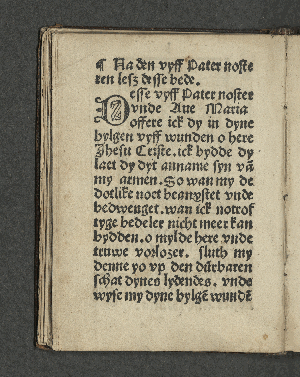 ¶ Na den vyff Pater noste
ren lesz desse bede.
Desse vyff Pater noster
vnde Aue Maria
offere ick dy in dyne
hylgen vyff wunden o here
Jhesu Criste. ick bydde dy
lact dy dyt anname syn vā
my armen. So wan my de
dotlike noet beanxstet vnde
bedwenget. wan ick notrof
tyge bedeler nicht meer kan
bydden. o mylde here vnde
truwe vorlozer. sluth my
denne yo vp den důrbaren
schat dynes lydendes. vnde
wyse my dyne hylgē wundē